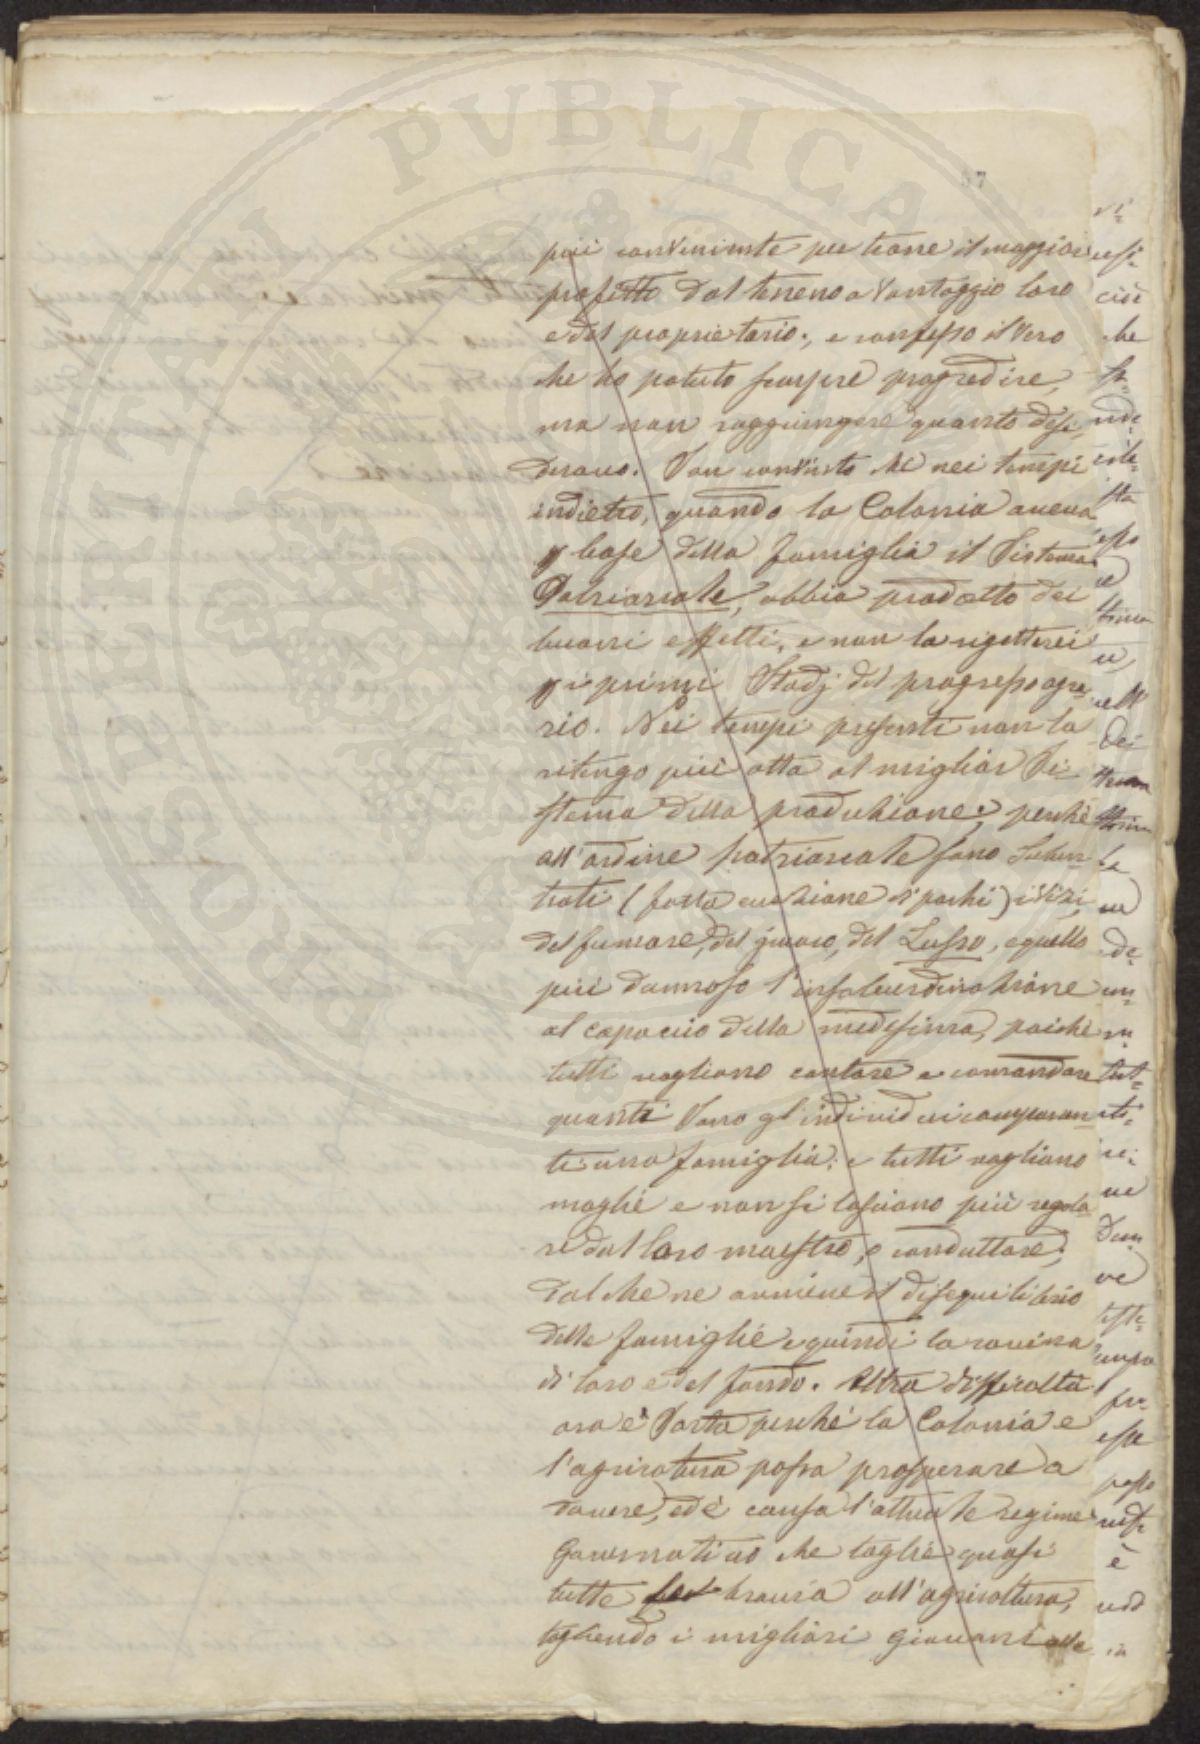 57
più conveniente per trarne il maggior
profitto dal terreno a vantaggio loro
e del proprietario; e confesso il vero
che ho potuto sempre progredire,
ma non raggiungere quanto desi-
deravo. Son convinto che nei tempi
indietro, quando la Colonia aveva
p base della famiglia il Sistema
Patriarcale, abbia prodotto dei
buoni effetti, e non la rigetterei
p i primi Stadj del progresso agra-
rio. Nei tempi presenti non la
ritengo più atta al miglior Si-
stema della produzione; perché
all'ordine patriarcale sono suben-
trati (fatta eccezione di pochi) i vizi
del fumare, del giuoco, del Lusso, e quello
più dannoso l'insubordinazione
al capoccio della medesima, poiché
tutti vogliono contare e comandare
quanti sono gl'individui componen-
ti una famiglia; e tutti vogliono
moglie e non si lasciano più regola-
re dal loro maestro, e conduttore;
dal che ne avviene il disequilibrio
delle famiglie e quindi la rovina
di loro e del fondo. Altra difficoltà
ora è sorta perché la Colonia e
l'agricoltura possa prosperare a
dovere, ed è causa l'attuale regime
Governativo che toglie quasi
tutte braccia all'agricoltura,
togliendo i migliori giovani alle
PROSPERITATI PVBLICAE